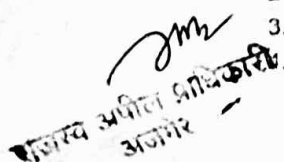 3.
राजस्व अपील प्राधिकारी
अजमेर